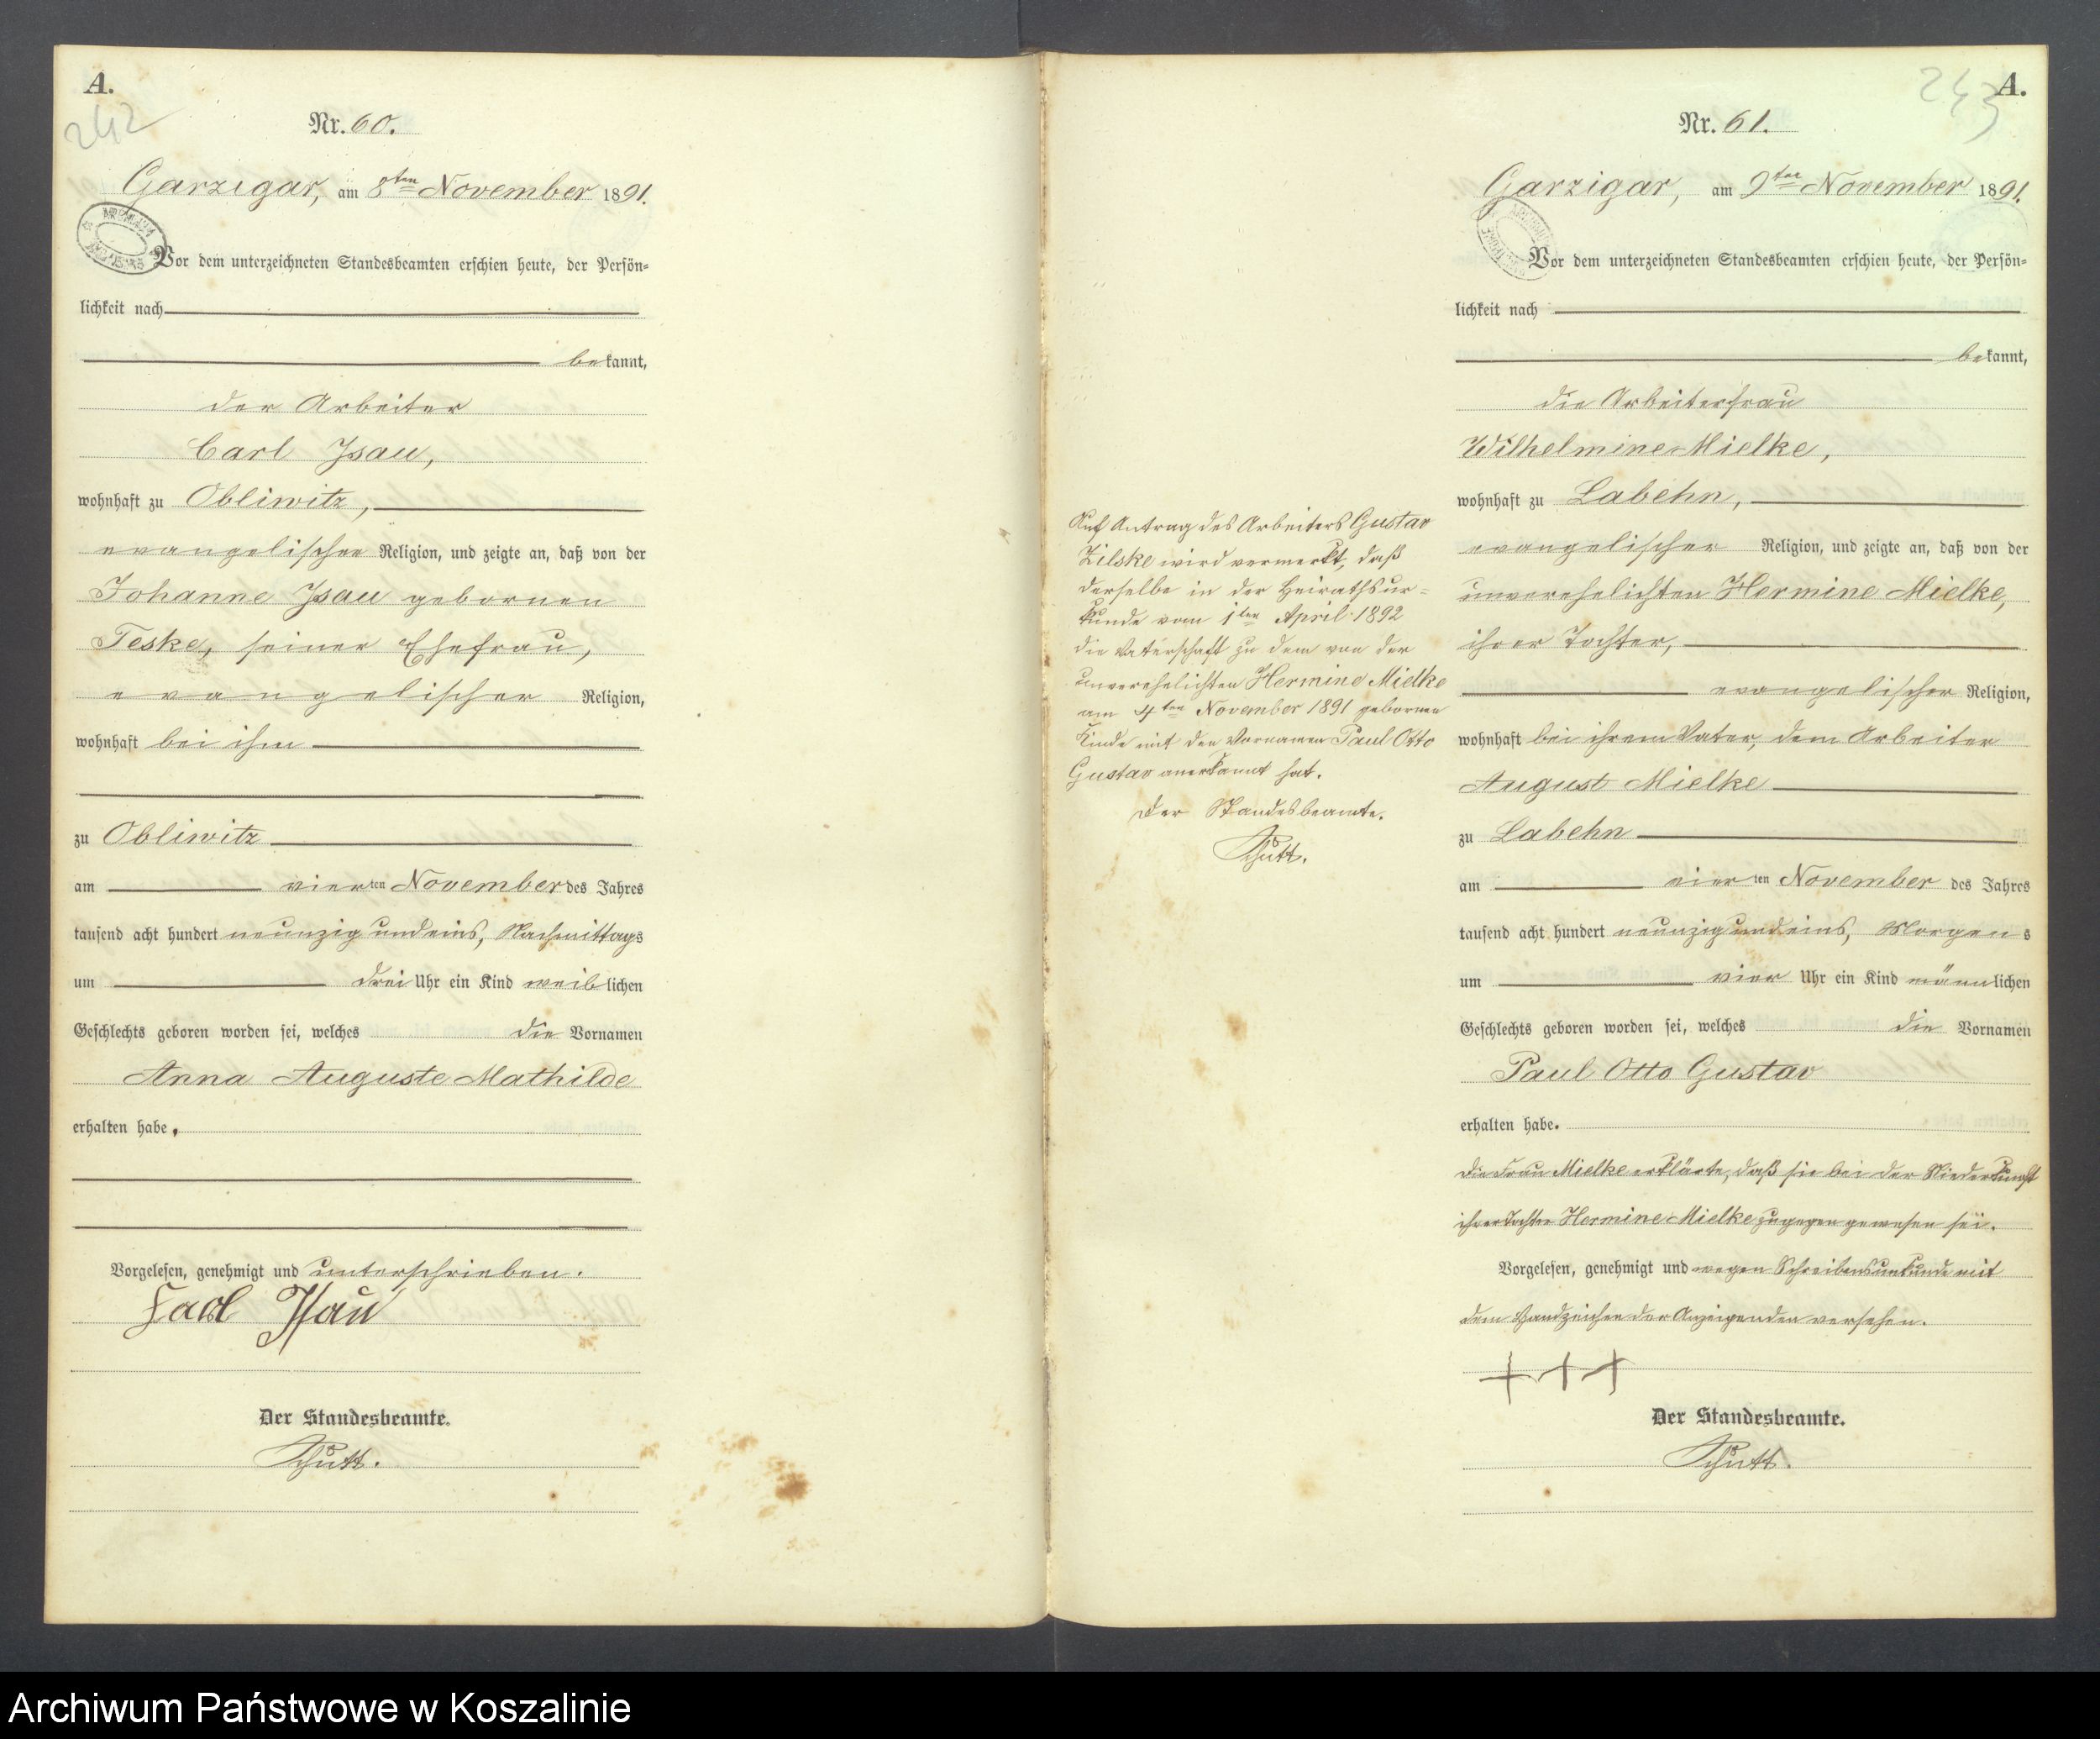 A.
242
Nr. 60.
Garzigar, am 8ten November 1891.
Vor dem unterzeichneten Standesbeamten erschien heute, der Persön-
lichkeit nach
bekannt,
der Arbeiter
Carl Isau,
wohnhaft zu Obliwitz,
evangelischer Religion, und zeigte an, daß von der
Johanne Isau gebornen
Teske, seiner Ehefrau,
evangelischer Religion,
wohnhaft bei ihm
zu Obliwitz
am vierten November des Jahres
tausend acht hundert neunzig und eins, Nachmittags
um drei Uhr ein Kind weiblichen
Geschlechts geboren worden sei, welches die Vornamen
Anna Auguste Mathilde
erhalten habe.
Vorgelesen, genehmigt und unterschrieben.
Carl Isau
Der Standesbeamte.
Schütt.
Auf Antrag des Arbeiters Gustav
Zilske wird vermerkt, daß
derselbe in der Heirathsur-
kunde vom 1ten April 1892
die Vaterschaft zu dem von der
unverehelichten Hermine Mielke
am 4ten November 1891 gebornen
Kinde mit den Vornamen Paul Otto
Gustav anerkannt hat.
Der Standesbeamte.
Schütt.
243
A.
Nr. 61.
Garzigar, am 9ten November 1891.
Vor dem unterzeichneten Standesbeamten erschien heute, der Persön-
lichkeit nach
bekannt,
die Arbeiterfrau
Wilhelmine Mielke,
wohnhaft zu Labehn,
evangelischer Religion, und zeigte an, daß von der
unverehelichten Hermine Mielke,
ihrer Tochter,
evangelischer Religion,
wohnhaft bei ihrem Vater, dem Arbeiter
August Mielke
zu Labehn
am vierten November des Jahres
tausend acht hundert neunzig und eins, Morgens
um vier Uhr ein Kind männlichen
Geschlechts geboren worden sei, welches die Vornamen
Paul Otto Gustav
erhalten habe.
Die Frau Mielke erklärte, daß sie bei der Niederkunft
ihrer Tochter Hermine Mielke zugegen gewesen sei.
Vorgelesen, genehmigt und wegen Schreibensunkunde mit
dem Handzeichen der Anzeigenden versehen.
+++
Der Standesbeamte.
Schütt.
Archiwum Państwowe w Koszalinie